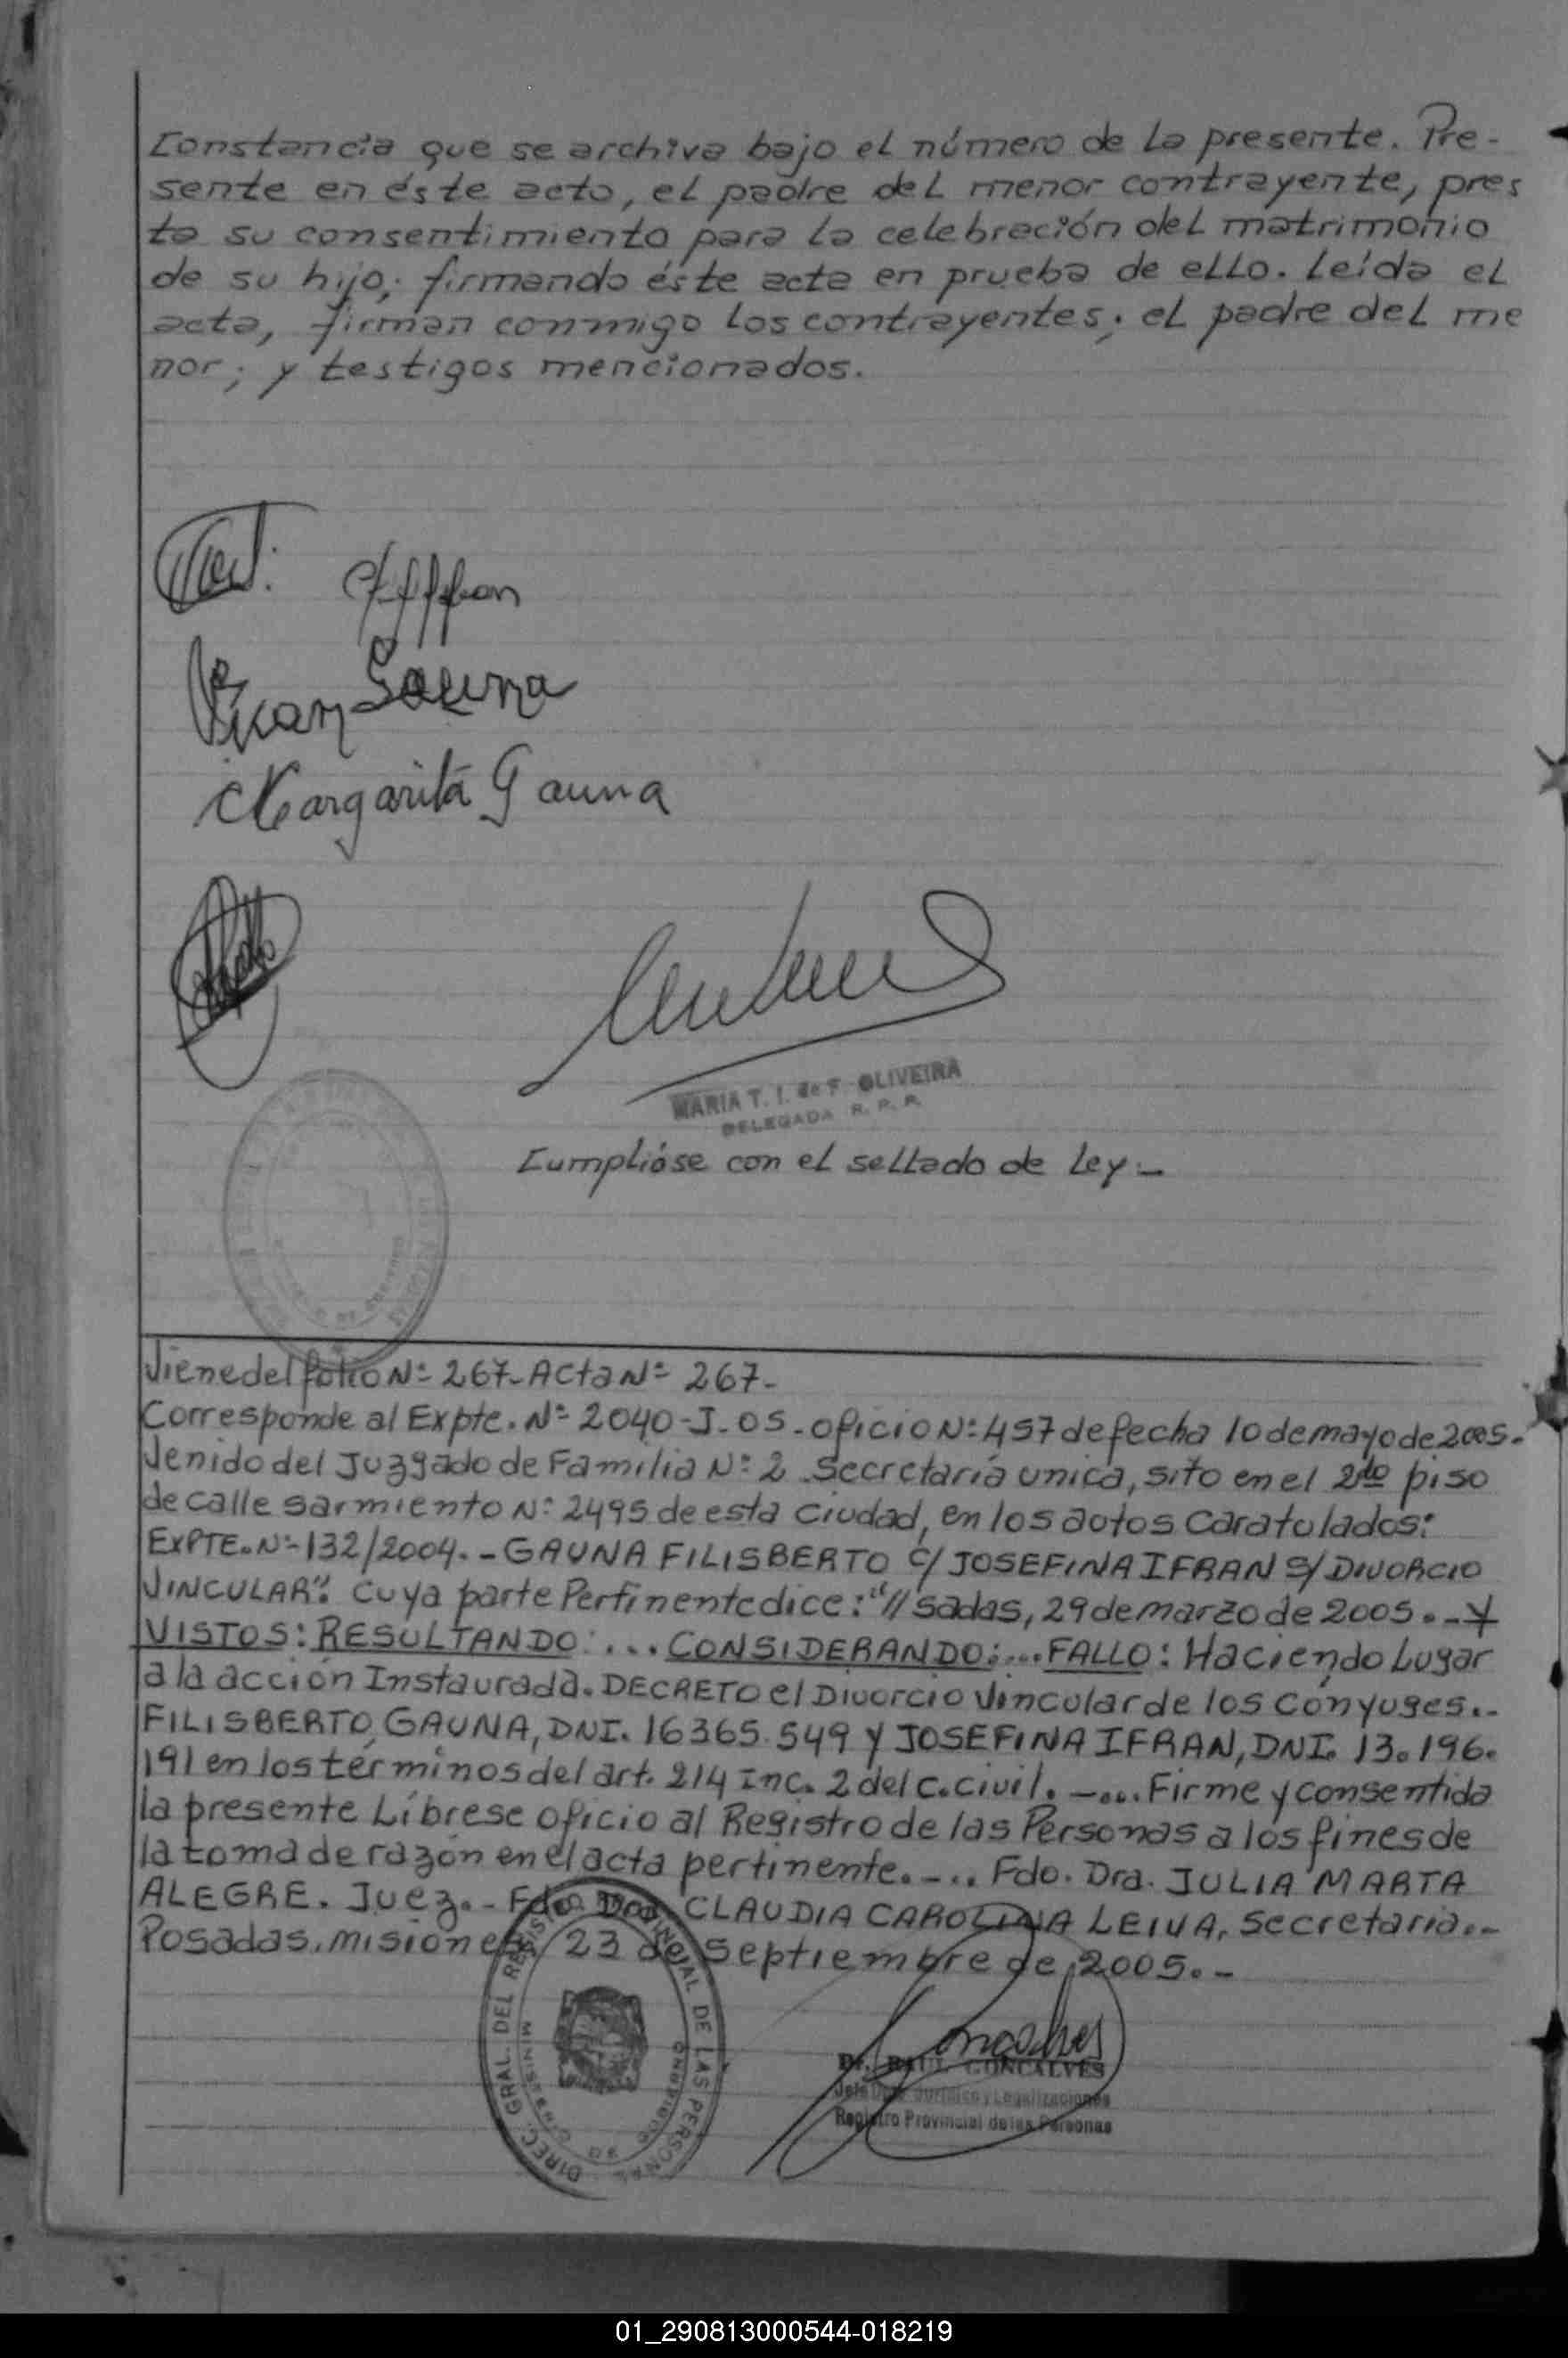 Constancia que se archiva bajo el número de la presente. Pre-
sente en éste acto, el padre del menor contrayente, pres
ta su consentimiento para la celebración del matrimonio
de su hijo; firmando éste acta en prueba de ello. Leída el
acta, firman conmigo los contrayentes; el padre del me
nor; y testigos mencionados.
Gauna
Margarita Gauna
MARIA T. I. de F. OLIVEIRA
DELEGADA R. P. P.
Cumplióse con el sellado de Ley.-
Viene del folio Nº 267-Acta Nº 267-
Corresponde al Expte. Nº 2040-J-05-oficio Nº 457 de fecha 10 de mayo de 2005.-
Venido del Juzgado de Familia Nº 2 Secretaría unica, sito en el 2do piso
de calle sarmiento Nº 2495 de esta Ciudad, en los autos caratulados:
EXPTE. Nº 132/2004.-GAUNA FILISBERTO C/ JOSEFINA IFRAN S/ DIVORCIO
VINCULAR". Cuya parte Pertinente dice: "//sadas, 29 de marzo de 2005.-Y
VISTOS: RESULTANDO:... CONSIDERANDO:... FALLO: Haciendo Lugar
a la acción Instaurada. DECRETO el Divorcio Vincular de los Cónyuges.-
FILISBERTO GAUNA, DNI. 16365.549 y JOSEFINA IFRAN, DNI. 13.196.
191 en los términos del art. 214 Inc. 2 del C. Civil. -... Firme y consentida
la presente Líbrese oficio al Registro de las Personas a los fines de
la toma de razón en el acta pertinente.-... Fdo. Dra. JULIA MARTA
ALEGRE. Juez.- Fdo. Dra. CLAUDIA CAROLINA LEIVA, Secretaria.-
Posadas, misiones, 23 de Septiembre de 2005.-
DIREC. GRAL. DEL REGISTRO PROVINCIAL DE LAS PERSONAS
MINISTERIO DE GOBIERNO
Goncalves
Dr. RAUL GONCALVES
Jefe Dpto. Jurídico y Legalizaciones
Registro Provincial de las Personas
01_290813000544-018219